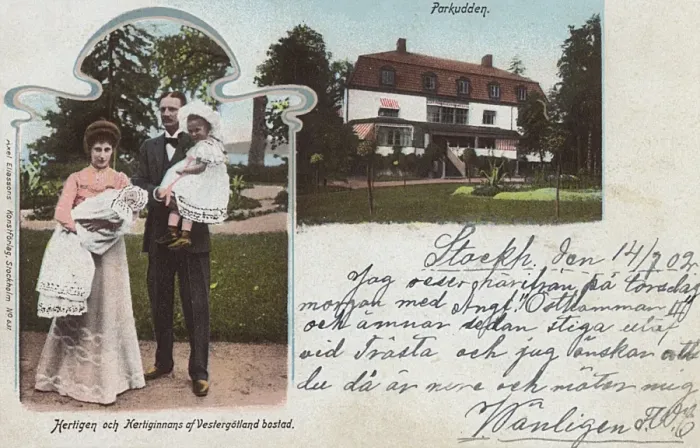 Parkudden.
Axel Eliassons Konstförlag, Stockholm
Stockh. den 14/7 02
Jag reser härifrån på torsdag
morgon med Ångf. "Östhammar"
och ämnar sedan stiga utaf
vid Trästa och jag önskar att
du då är nere och möter mig
Vänligen
Hertigen och Hertiginnans af Vestergötland bostad.